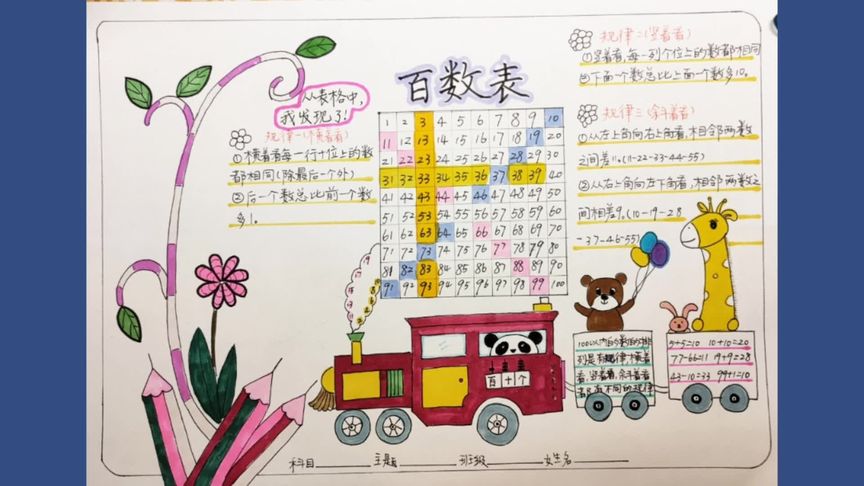 百数表
从表格中,
我发现了!
规律一(横着看)
①横着看每一行十位上的数
都相同(除最后一个外)
②后一个数总比前一个数
多1。
1 2 3 4 5 6 7 8 9 10
11 12 13 14 15 16 17 18 19 20
21 22 23 24 25 26 27 28 29 30
31 32 33 34 35 36 37 38 39 40
41 42 43 44 45 46 47 48 49 50
51 52 53 54 55 56 57 58 59 60
61 62 63 64 65 66 67 68 69 70
71 72 73 74 75 76 77 78 79 80
81 82 83 84 85 86 87 88 89 90
91 92 93 94 95 96 97 98 99 100
规律二(竖着看)
①竖着看,每一列个位上的数都相同
②下面一个数总比上面一个数多10。
规律三(斜着看)
①从左上角向右下角看,相邻两数
之间差11。(11-22-33-44-55)
②从右上角向左下角看,相邻两数之
间相差9。(10-19-28
-37-46-55)
百 十 个
100以内的数的排
列是有规律,横着
看,竖着看,斜着看
都有不同的规律
5+5=10 10+10=20
77-66=11 19+9=28
43-10=33 99+1=10
科目 主题 班级 女生名